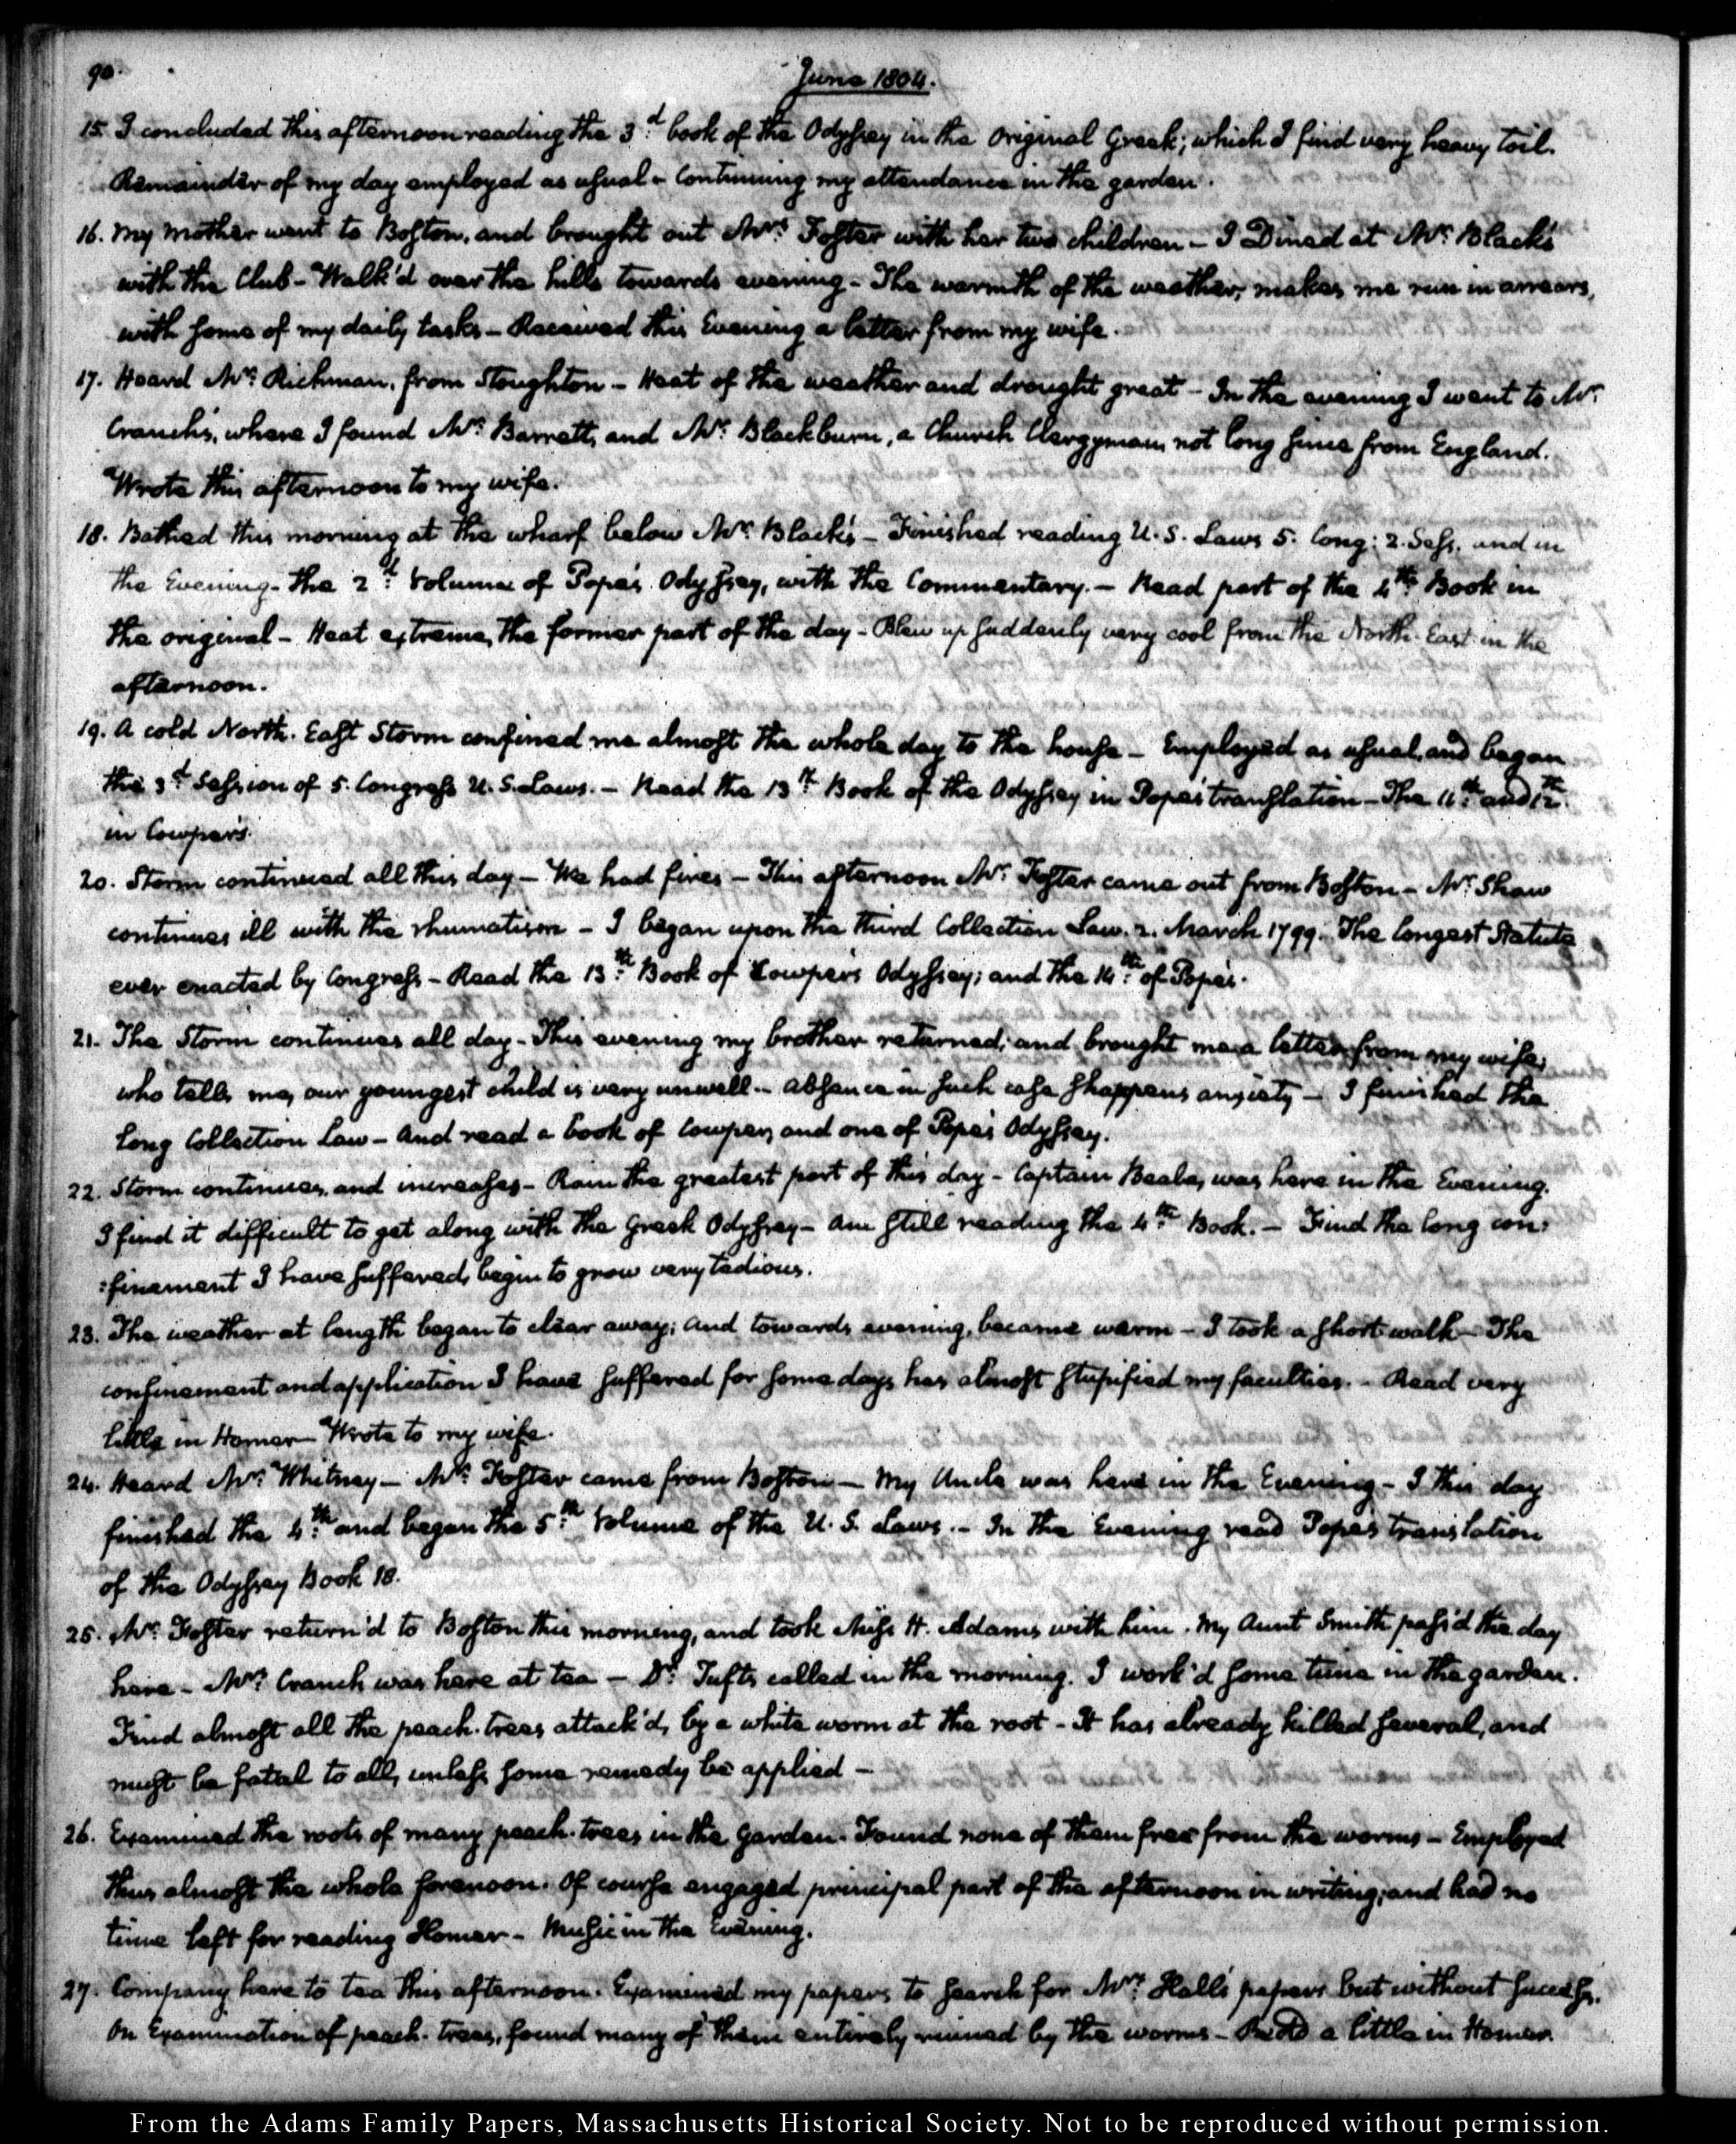 90.
June 1804.
15. I concluded this afternoon reading the 3.d book of the Odyssey in the original Greek; which I find very heavy toil.
Remainder of my day employed as usual - Continuing my attendance in the garden.
16. My Mother went to Boston, and brought out Mrs. Foster with her two children - I Dined at Mr. Black's
with the Club - Walk'd over the hills towards evening - The warmth of the weather, makes me run in arrears,
with some of my daily tasks - Received this Evening a letter from my wife.
17. Heard Mr. Richman, from Stoughton - Heat of the weather and drought great - In the evening I went to Mr.
Cranch's, where I found Mr. Barrett, and Mr. Blackburn, a Church Clergyman, not long since from England.
Wrote this afternoon to my wife.
18. Bathed this morning at the wharf below Mr. Black's - Finished reading U.S. Laws 5. Cong: 2. Sess. and in
the Evening - the 2.d Volume of Pope's Odyssey, with the Commentary. - Read part of the 4.th Book in
the original - Heat extreme, the former part of the day - Blew up suddenly very cool from the North-East in the
afternoon.
19. A cold North-East Storm confined me almost the whole day to the house - Employed as usual, and began
the 3.d Session of 5. Congress U.S. Laws. - Read the 13.th Book of the Odyssey in Pope's translation - The 11.th and 12.th
in Cowper's.
20. Storm continued all this day - We had fires - This afternoon Mr. Foster came out from Boston - Mr. Shaw
continues ill with the rhumatism - I began upon the third Collection Law. 2. March 1799. The longest Statute
ever enacted by Congress - Read the 13.th Book of Cowper's Odyssey; and the 14.th of Pope's.
21. The Storm continues all day - This evening my brother returned; and brought me a letter from my wife,
who tells me, our youngest child is very unwell - absence in such case sharpens anxiety - I finished the
long Collection Law - And read a book of Cowper, and one of Pope's Odyssey.
22. Storm continues, and increases - Rain the greatest part of this day - Captain Beale, was here in the Evening.
I find it difficult to get along with the Greek Odyssey - Am still reading the 4.th Book. - Find the long con:
:finement I have suffered, begin to grow very tedious.
23. The weather at length began to clear away; and towards evening, became warm - I took a short walk - The
confinement and application I have suffered for some days has almost stupified my faculties. - Read very
little in Homer - Wrote to my wife.
24. Heard Mr. Whitney - Mr. Foster came from Boston - My Uncle was here in the Evening - I this day
finished the 4.th and began the 5.th Volume of the U.S. Laws. - In the Evening read Pope's translation
of the Odyssey Book 18.
25. Mr. Foster return'd to Boston this morning, and took Miss H. Adams with him. My Aunt Smith pass'd the day
here - Mrs. Cranch was here at tea - Dr. Tufts called in the morning. I work'd some time in the garden.
Find almost all the peach-trees attack'd, by a white worm at the root - It has already killed several, and
must be fatal to all, unless some remedy be applied -
26. Examined the roots of many peach-trees in the garden. Found none of them free from the worms - Employed
thus almost the whole forenoon. Of course engaged principal part of the afternoon in writing, and had no
time left for reading Homer - Music in the Evening.
27. Company here to tea this afternoon. Examined my papers to search for Mrs. Hall's papers but without success.
On Examination of peach-trees, found many of them entirely ruined by the worms - Read a little in Homer.
From the Adams Family Papers, Massachusetts Historical Society. Not to be reproduced without permission.